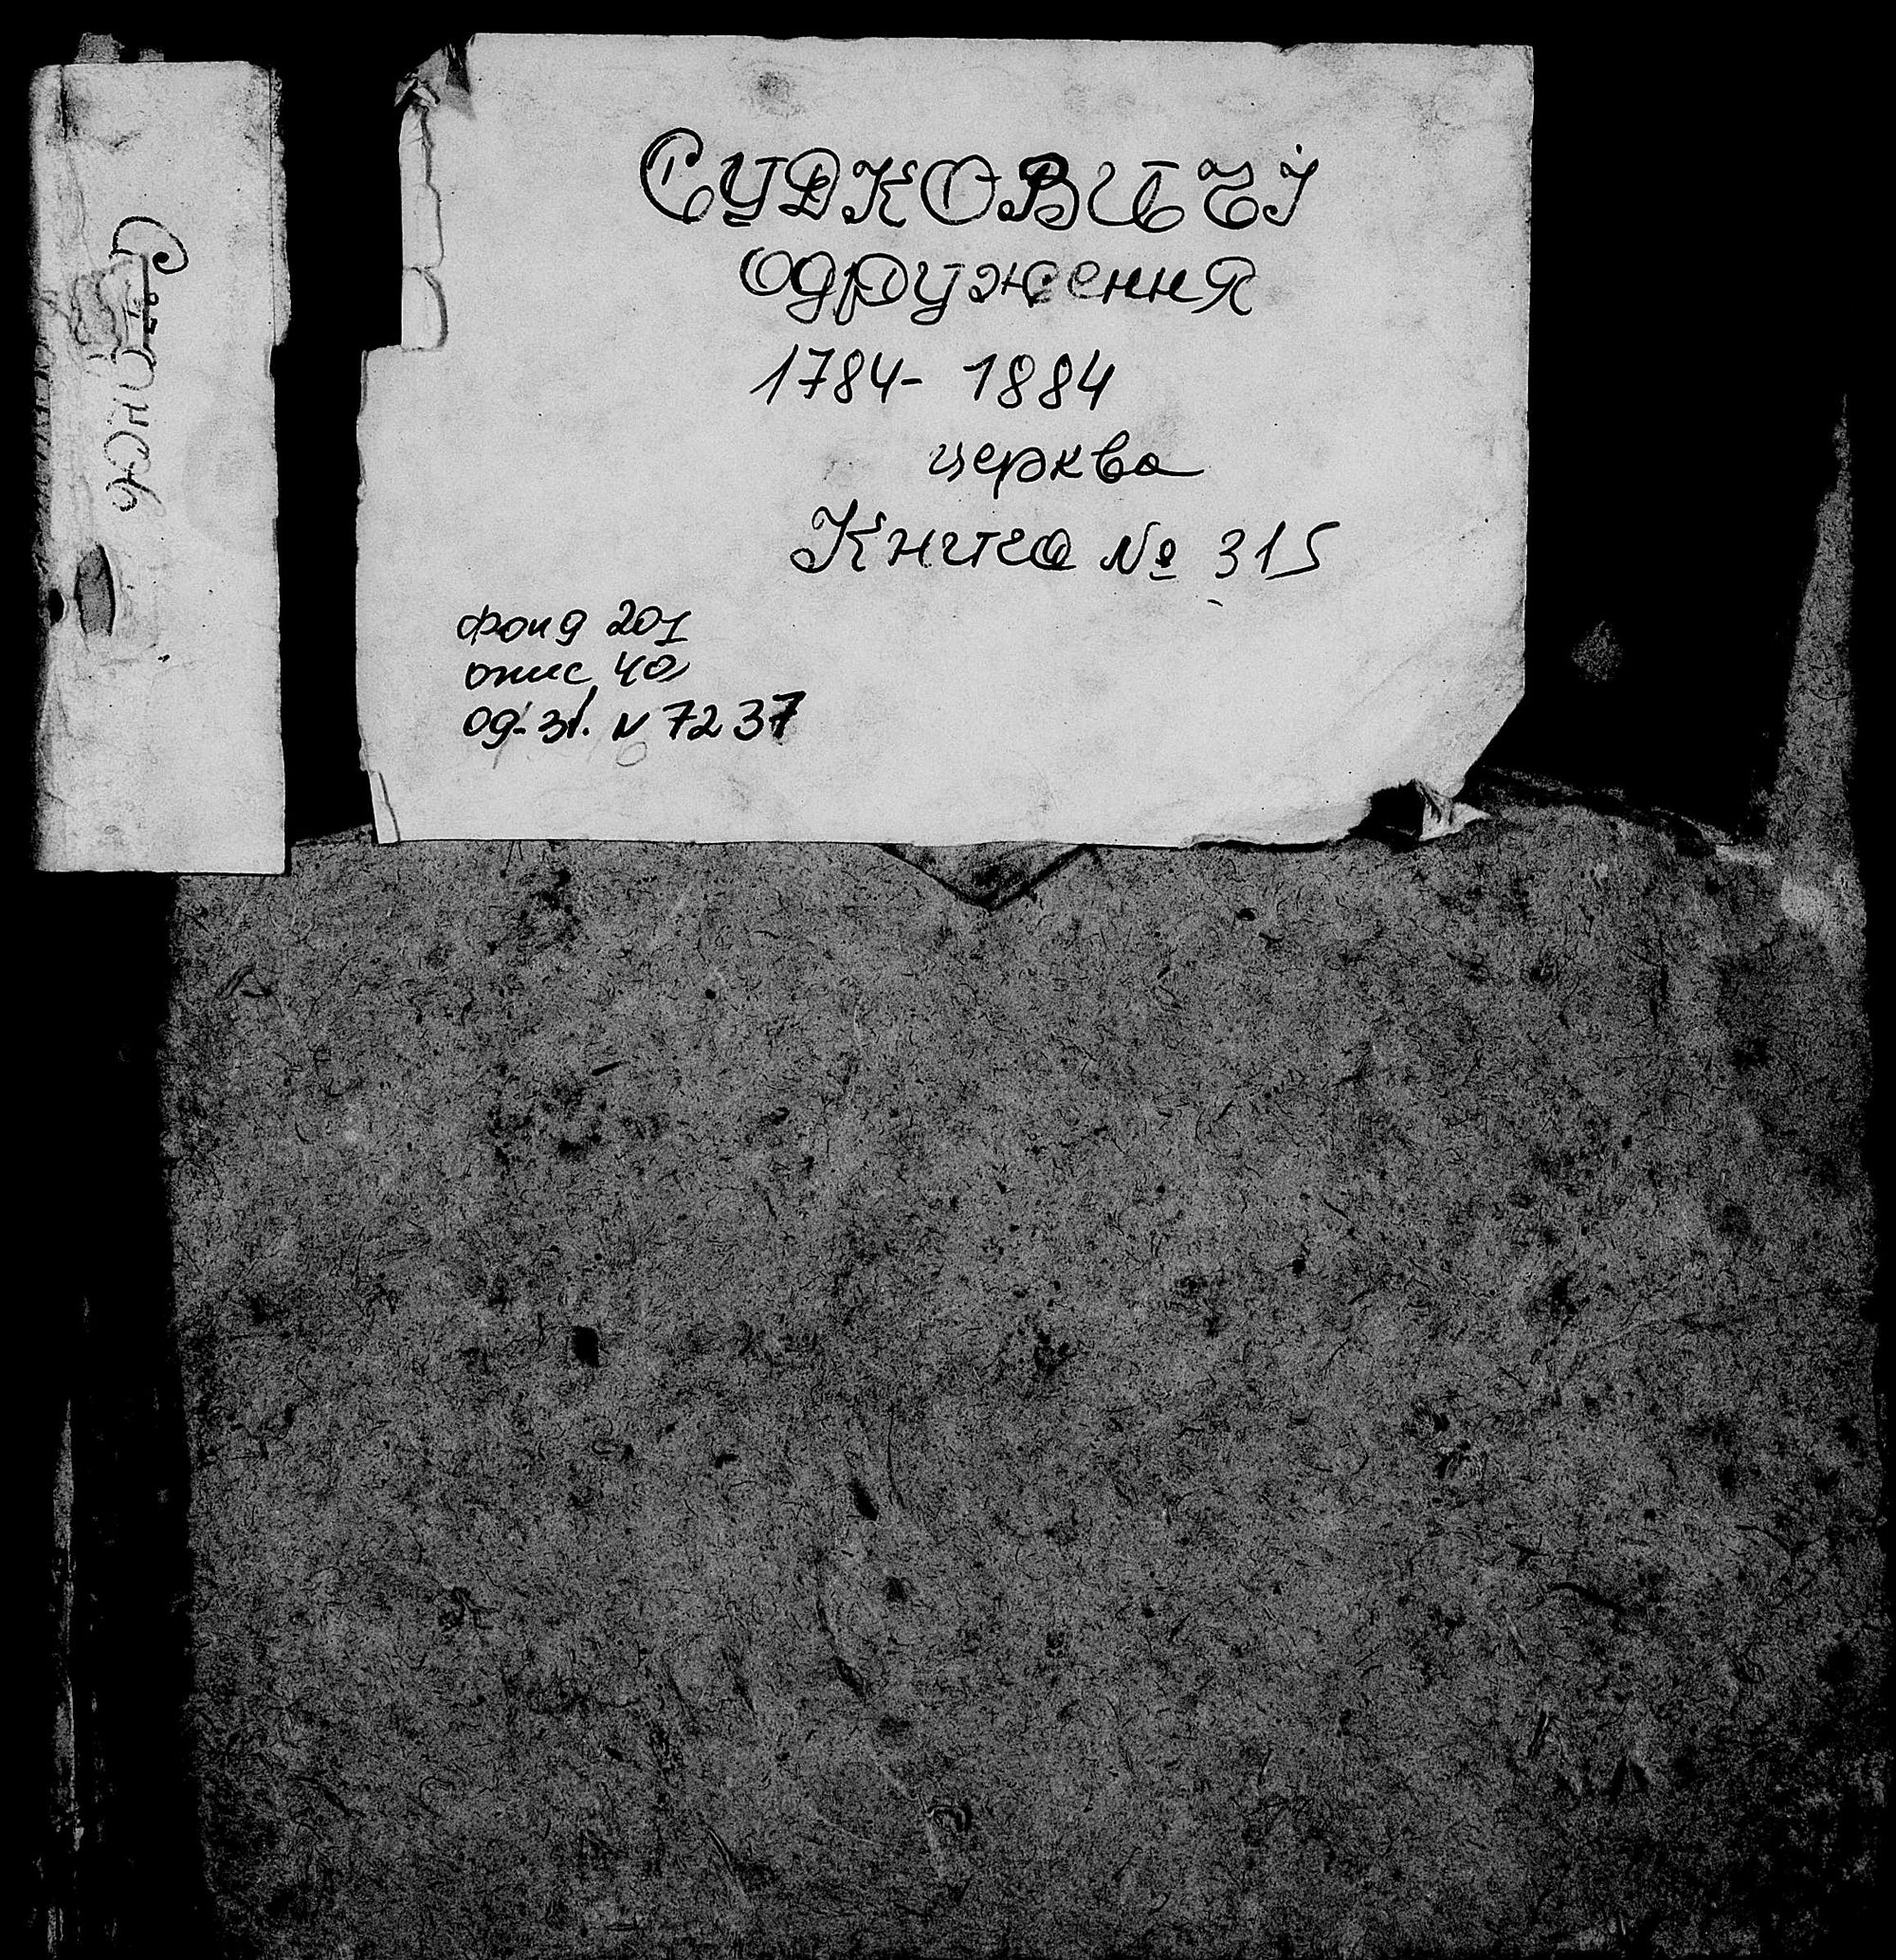 Судковичі
одруження
1784 - 1884
церква
Книга № 315
фонд 201
опис 4а
од. зб. N 7237